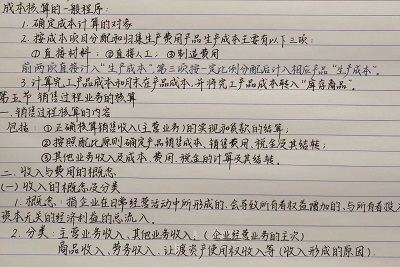 成本核算的一般程序:
1. 确定成本计算的对象
2. 按成本项目分配和归集生产费用产品生产成本主要有以下三项:
①直接材料; ②直接人工; ③制造费用
前两项直接计入"生产成本",第三项按一定比例分配后计入相应产品"生产成本"。
3. 计算完工产品成本和月末在产品成本,并将完工产品成本转入"库存商品"。
第五节 销售过程业务的核算
一. 销售过程核算的内容
包括: ①正确核算销售收入(主营业务)的实现和货款的结算;
②按照配比原则确定产品销售成本、销售费用、税金及其结转;
③其他业务收入及成本、费用、税金的计算及其结转。
二. 收入与费用的概念
(一) 收入的概念及分类
1. 概念: 指企业在日常经营活动中所形成的、会导致所有者权益增加的、与所有者投入
资本无关的经济利益的总流入。
2. 分类: 主营业务收入、其他业务收入; (企业经营业务的主次)
商品收入、劳务收入、让渡资产使用权收入等(收入形成的原因)